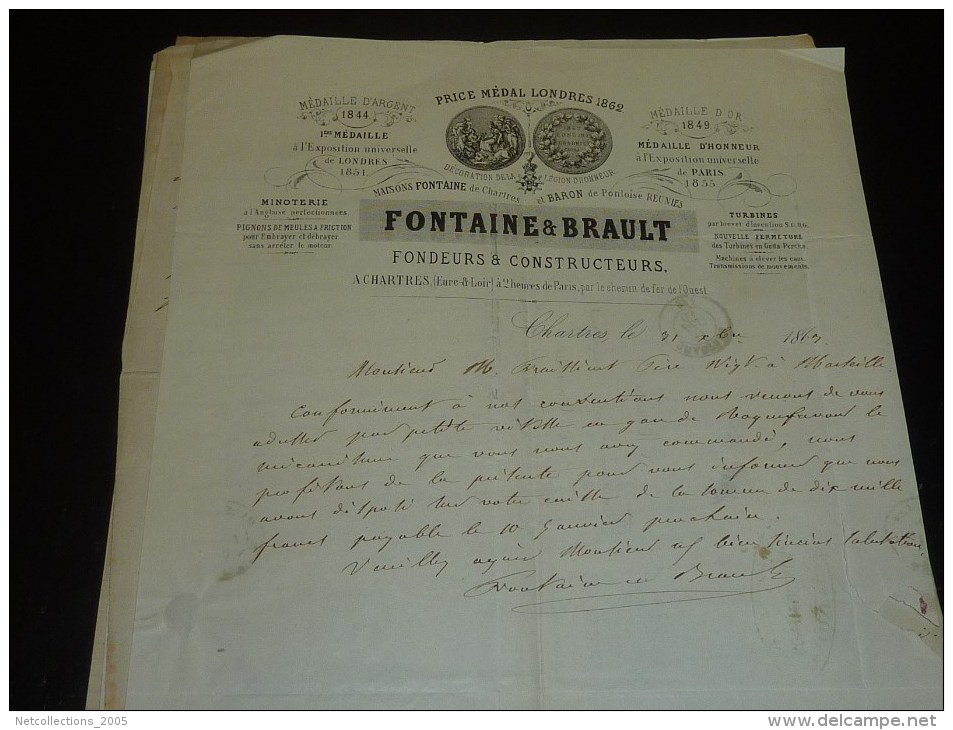 MÉDAILLE D'ARGENT
1844
1re MÉDAILLE
à l'Exposition universelle
de LONDRES
1851.
PRICE MÉDAL LONDRES 1862
DÉCORATION DE LA LÉGION D'HONNEUR
MÉDAILLE D'OR
1849.
MÉDAILLE D'HONNEUR
à l'Exposition universelle
de PARIS.
1855
MAISONS FONTAINE de Chartres et BARON de Pontoise RÉUNIES
MINOTERIE
à l'Anglaise perfectionnées.
PIGNONS DE MEULES A FRICTION
pour Embrayer et débrayer
sans arrêter le moteur.
FONTAINE & BRAULT
FONDEURS & CONSTRUCTEURS,
A CHARTRES, (Eure-&-Loir) à 2 heures de Paris, par le chemin de fer de l'Ouest.
TURBINES
par brevet d'Invention S.G.D.G.
NOUVELLE FERMETURE
des Turbines en Gutta-Percha.
Machines à élever les eaux.
Transmissions de mouvements.
Chartres, le 31 xbre 186
Monsieur M. père à Marseille
Conformément à nos conventions nous venons de vous
adresser par petite vitesse en gare de Roquefavour le
mécanisme que vous nous avez commandé, nous
profitons de la présente pour vous informer que nous
avons disposé sur votre caisse de la somme de dix mille
francs payable le 10 Janvier prochain.
Veuillez agréer Monsieur nos bien sincères salutations
Fontaine et Brault
Netcollections_2005
http://www.delcampe.net